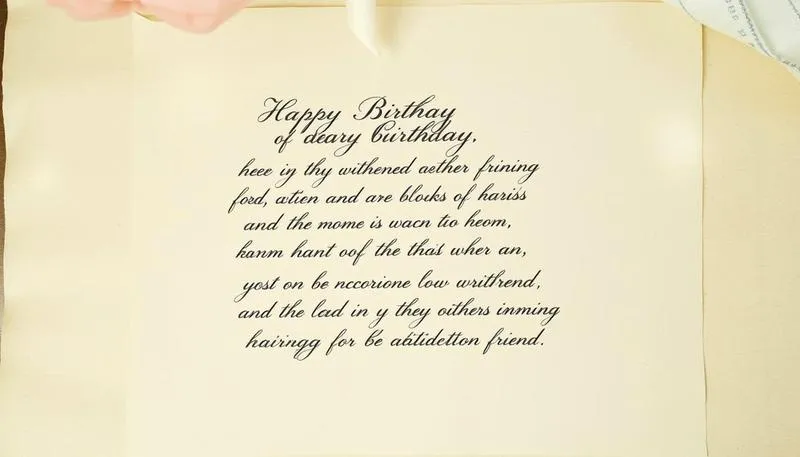 Happy Birthay
of deary Guirthday,
heee in thy withened aether frining
ford, atien and are blocks of hariss
and the mome is wacn tio heom,
kanm hant oof the thas wher an,
yost on be nccorione low writhrend,
and the lad in y they oithers inming
hairngg for be abtidetton friend.